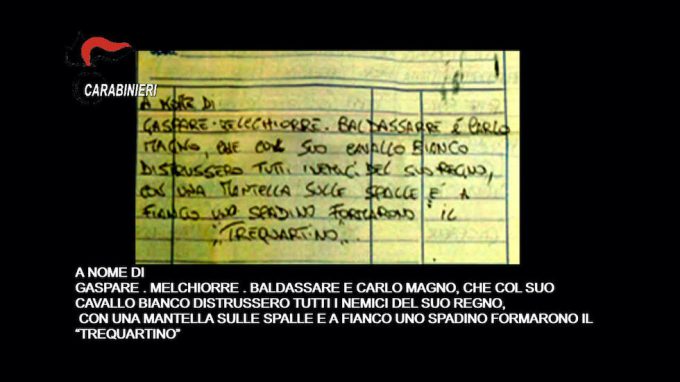 CARABINIERI
A NOME DI
GASPARE . MELCHIORRE . BALDASSARRE E' CARLO
MAGNO, CHE COL SUO CAVALLO BIANCO
DISTRUSSERO TUTI I NEMICI DEL SUO REGNO,
CON UNA MANTELLA SULLE SPALLE E' A
FIANCO UNO SPADINO FORMARONO IL
"TREQUARTINO"
A NOME DI
GASPARE . MELCHIORRE . BALDASSARE E CARLO MAGNO, CHE COL SUO
CAVALLO BIANCO DISTRUSSERO TUTTI I NEMICI DEL SUO REGNO,
CON UNA MANTELLA SULLE SPALLE E A FIANCO UNO SPADINO FORMARONO IL
“TREQUARTINO”